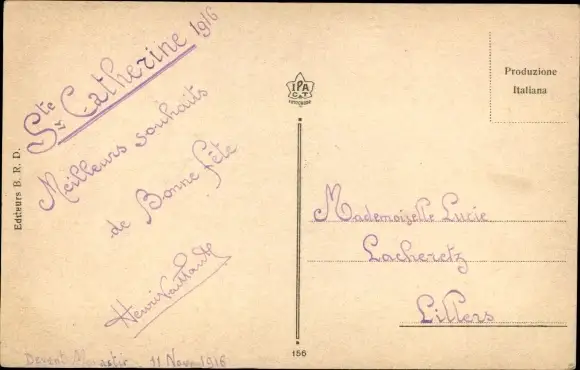 Ste Catherine 1916
Meilleurs souhaits
de Bonne fête
Henri Vaillant
Devant Monastir 11 Nov 1916
Editeurs B. R. D.
IPA
CT
156
Produzione
Italiana
Mademoiselle Lucie
Lacheretz
Lillers